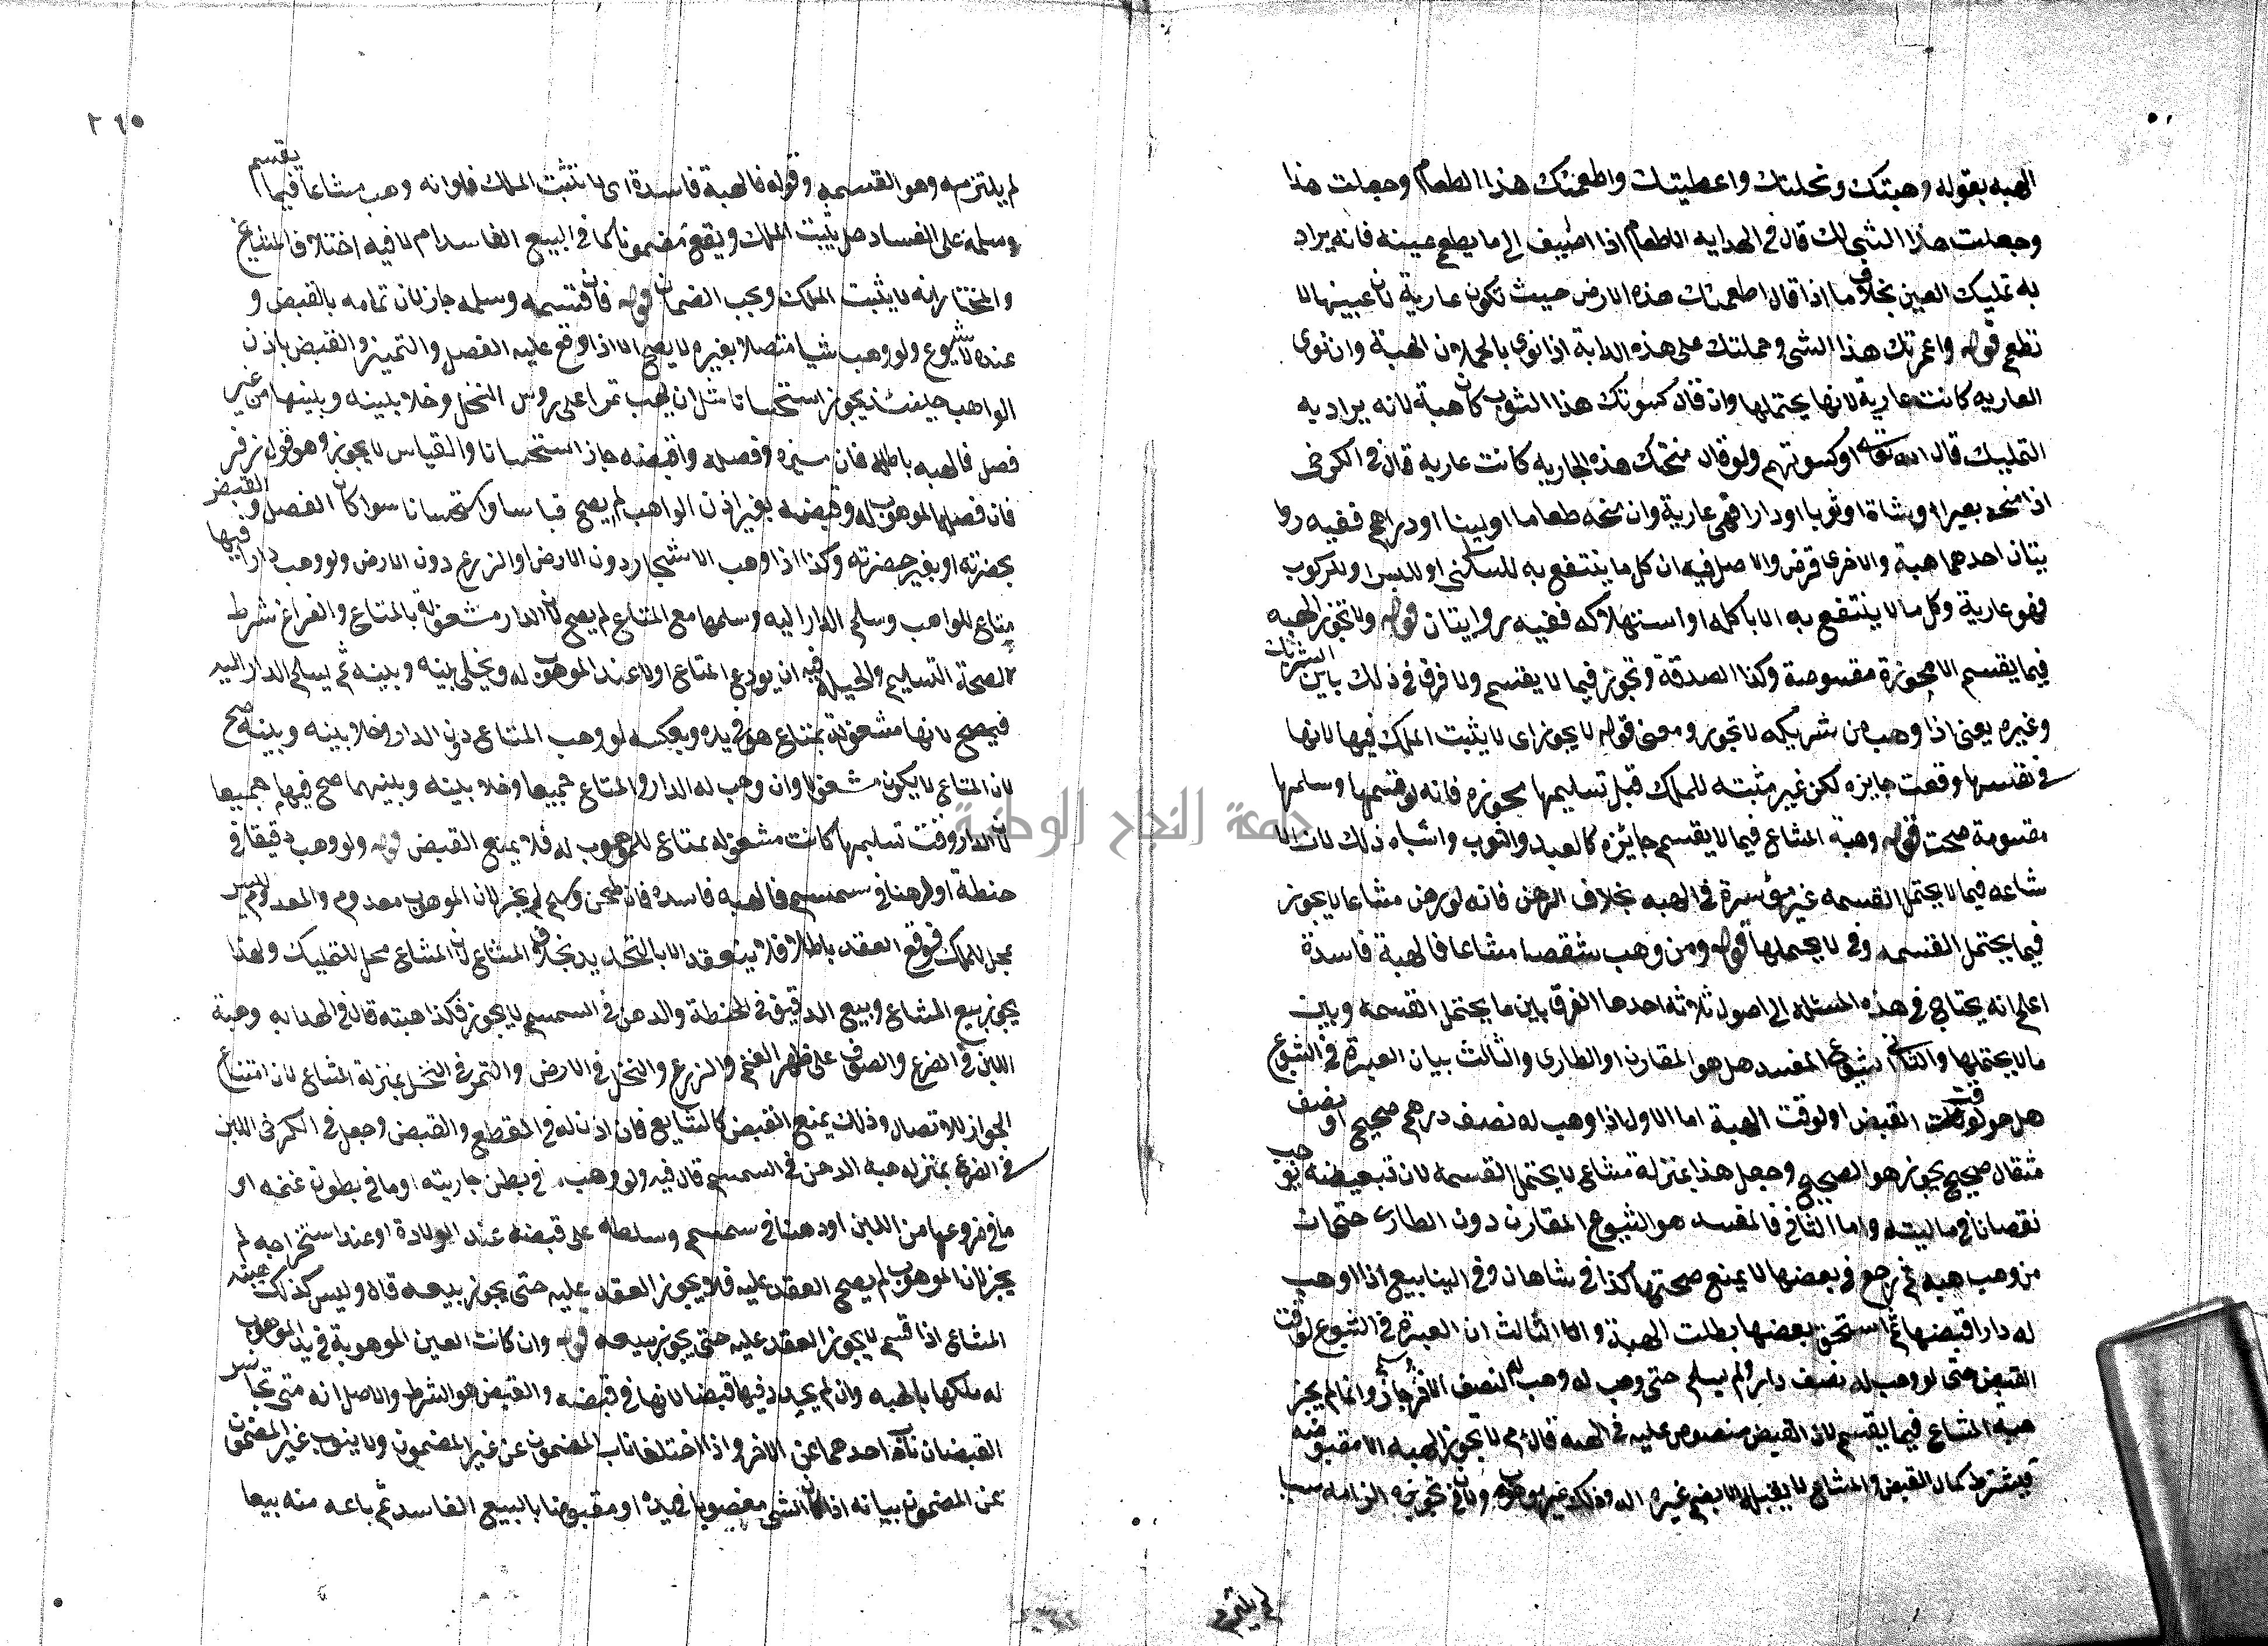 الهبه بقوله وهبتك ونحلتك واعطيتك واطعمتك هذا الطعام وجعلت هذا
وجعلت هذا الشي لك قال في الهدايه الاطعام اذا اضيف الى ما يطعم عينه فانه يراد
به تمليك العين بخلاف ما اذا قال اطعمتك هذه الارض حيث تكون عارية لان عينها لا
تطعم قوله واعمرتك هذا الشي وحملتك على هذه الدابة اذا نوى بالحملان الهبة وان نوى
العاريه كانت عارية لانها يحتملها وان قال كسوتك هذا الثوب كان هبة لانه يراد به
التمليك قال الله تعالى او كسوتهم ولو قال منحتك هذه الجاريه كانت عارية قال في الكرخي
اذا منحه بعيرا او شاة او ثوبا او دارا فهي عارية وان منحه طعاما او لبنا او دراهم ففيه روا
يتان احدهما هبة والاخرى قرض والاصل فيه ان كل ما ينتفع به للسكنى او للبس او للركوب
فهو عارية وكل ما لا ينتفع به الا باكله او استهلاكه ففيه روايتان قوله ولا تجوز الهبه
فيما يقسم الا محوزة مقسومة وكذا الصدقة وتجوز فيما لا يقسم ولا فرق في ذلك بين الشريك
وغيره يعني اذا وهب من شريكه لا تجوز ومعنى قوله لا يجوز اى لا يثبت الملك فيها لانها
في نفسها وقعت جايزه لكن غير مثبته للملك قبل تسليمها محوزه فانه لو قسمها وسلمها
مقسومة صحت قوله وهبة المشاع فيما لا يقسم جايزه كالعبد والثوب واشباه ذلك لان الا
شاعه فيما لا يحتمل القسمه غير مؤثرة في الهبه بخلاف الرهن فانه لو رهن مشاعا لا يجوز
فيما يحتمل القسمه وفي لا يحتملها قوله ومن وهب شقصا مشاعا فالهبة فاسدة
اعلم انه يحتاج في هذه المسئله الى اصول ثلاثه احدها الفرق بين ما يحتمل القسمة وبين
ما لا يحتملها والثاني الشيوع المفسد هل هو المقارن او الطارى والثالث بيان العبرة في الشيوع
هل هو لوقت القبض او لوقت الهبة اما الاول اذا وهب له نصف درهم صحيح او نصف
مثقال صحيح يجوز هو الصحيح وجعل هذا بمنزلة مشاع لا يحتمل القسمة لان تبعيضه يوجب
نقصانا في ماليته واما الثاني فالمفسد هو الشيوع المقارن دون الطارى حتى ان
من وهب هبه ثم رجع في بعضها لا يمنع صحتها كذا في شاهان وفي الينابيع اذا وهب
له دارا فقبضها ثم استحق بعضها بطلت الهبة واما الثالث ان العبرة في الشيوع لوقت
القبض حتى لو وهب له نصف دار ولم يسلم حتى وهب له النصف الاخر وسلم جاز وانما لم يجز
هبة المشاع فيما يقسم لان القبض منصوص عليه في الهبة قال عم لا تجوز الهبه الا مقبوضه
فيشترط كمال القبض والمشاع لا يقبله الا بضم غيره اليه وذلك غير موهوب ولان في تجويزه الزامه شيا
لم يلتزم
٢٦٥
لم يلتزمه وهو القسمه وقوله فالهبة فاسدة اى لا تثبت الملك فلو انه وهب مشاعا فيما يقسم
وسلمه على الفساد هل يثبت الملك ويقع مضمونا كما في البيع الفاسد ام لا فيه اختلاف المشايخ
والمختار انه لا يثبت الملك ويجب الضمان قوله فان قسمه وسلمه جاز لان تمامه بالقبض و
عنده لا شيوع ولو وهب شيا متصلا بغيره لا يصح الا اذا وقع عليه الفصل والتميز والقبض باذن
الواهب حينئذ يجوز استحسانا مثل ان يهب تمرا على روس النخل وخلا بينه وبينها من غير
فصل فالهبه باطله فان ميزه وفصله واقبضه جاز استحسانا والقياس لا يجوز وهو قول زفر
فان فصله الموهوب له وقبضه بغير اذن الواهب لم يصح قياسا واستحسانا سوا كان الفصل والقبض
بحضرته او بغير حضرته وكذا اذا وهب الاشجار دون الارض او الزرع دون الارض ولو وهب دارا فيها
متاع للواهب وسلم الدار اليه وسلمها مع المتاع لم يصح لان الدار مشغولة بالمتاع والفراغ شرط
لصحة التسليم والحيلة فيه ان يودع المتاع اولا عند الموهوب له ويخلى بينه وبينه ثم يسلم الدار اليه
فيصح لانها مشغولة بمتاع هو في يده وبعكسه لو وهب المتاع دون الدار وخلا بينه وبينه صح
لان المتاع لا يكون مشغولا وان وهب له الدار والمتاع جميعا وخلا بينه وبينهما صح فيهما جميعا
لان الدار وقت تسليمها كانت مشغوله بمتاع للموهوب له فلا يمنع القبض قوله ولو وهب دقيقا في
حنطة او دهنا في سمسم فالهبه فاسده فان طحن وسلم لم يجز لان الموهوب معدوم والمعدوم ليس
بمحل للملك فوقع العقد باطلا فلا ينعقد الا بالتجديد بخلاف المشاع لان المشاع محل للتمليك ولهذا
يجوز بيع المشاع وبيع الدقيق في الحنطة والدهن في السمسم لا يجوز فكذا هبته قال في الهدايه وهبة
اللبن في الضرع والصوف على ظهر الغنم والزرع والنخل في الارض والتمر في النخل بمنزلة المشاع لان امتناع
الجواز للاتصال وذلك يمنع القبض كالشايع فان اذن له في القطع والقبض وجعل في الكرخي اللبن
في الضرع بمنزله هبه الدهن في السمسم قال فيه ولو وهب ما في بطن جاريته او ما في بطون غنمه او
ما في ضروعها من اللبن او دهنا في سمسم وسلطه على قبضه عند الولادة او عند استخراجه لم
يجز لان الموهوب لم يصح العقد عليه فلا يجوز العقد عليه حتى يجوز بيعه قال وليس كذلك هبة
المشاع اذا قسم لا يجوز العقد عليه حتى يجوز بيعه قوله وان كانت العين الموهوبة في يد الموهوب
له ملكها بالهبه وان لم يجدد فيها قبضا لانها في قبضه والقبض هو الشرط والاصل انه متى تجانس
القبضان ناب احدهما عن الاخر واذا اختلفا ناب المضمون عن غير المضمون ولا ينوب غير المضمون
عن المضمون بيانه اذا كان الشي مغصوبا في يده او مقبوضا بالبيع الفاسد ثم باعه منه بيعا
جامعة النجاح الوطنية